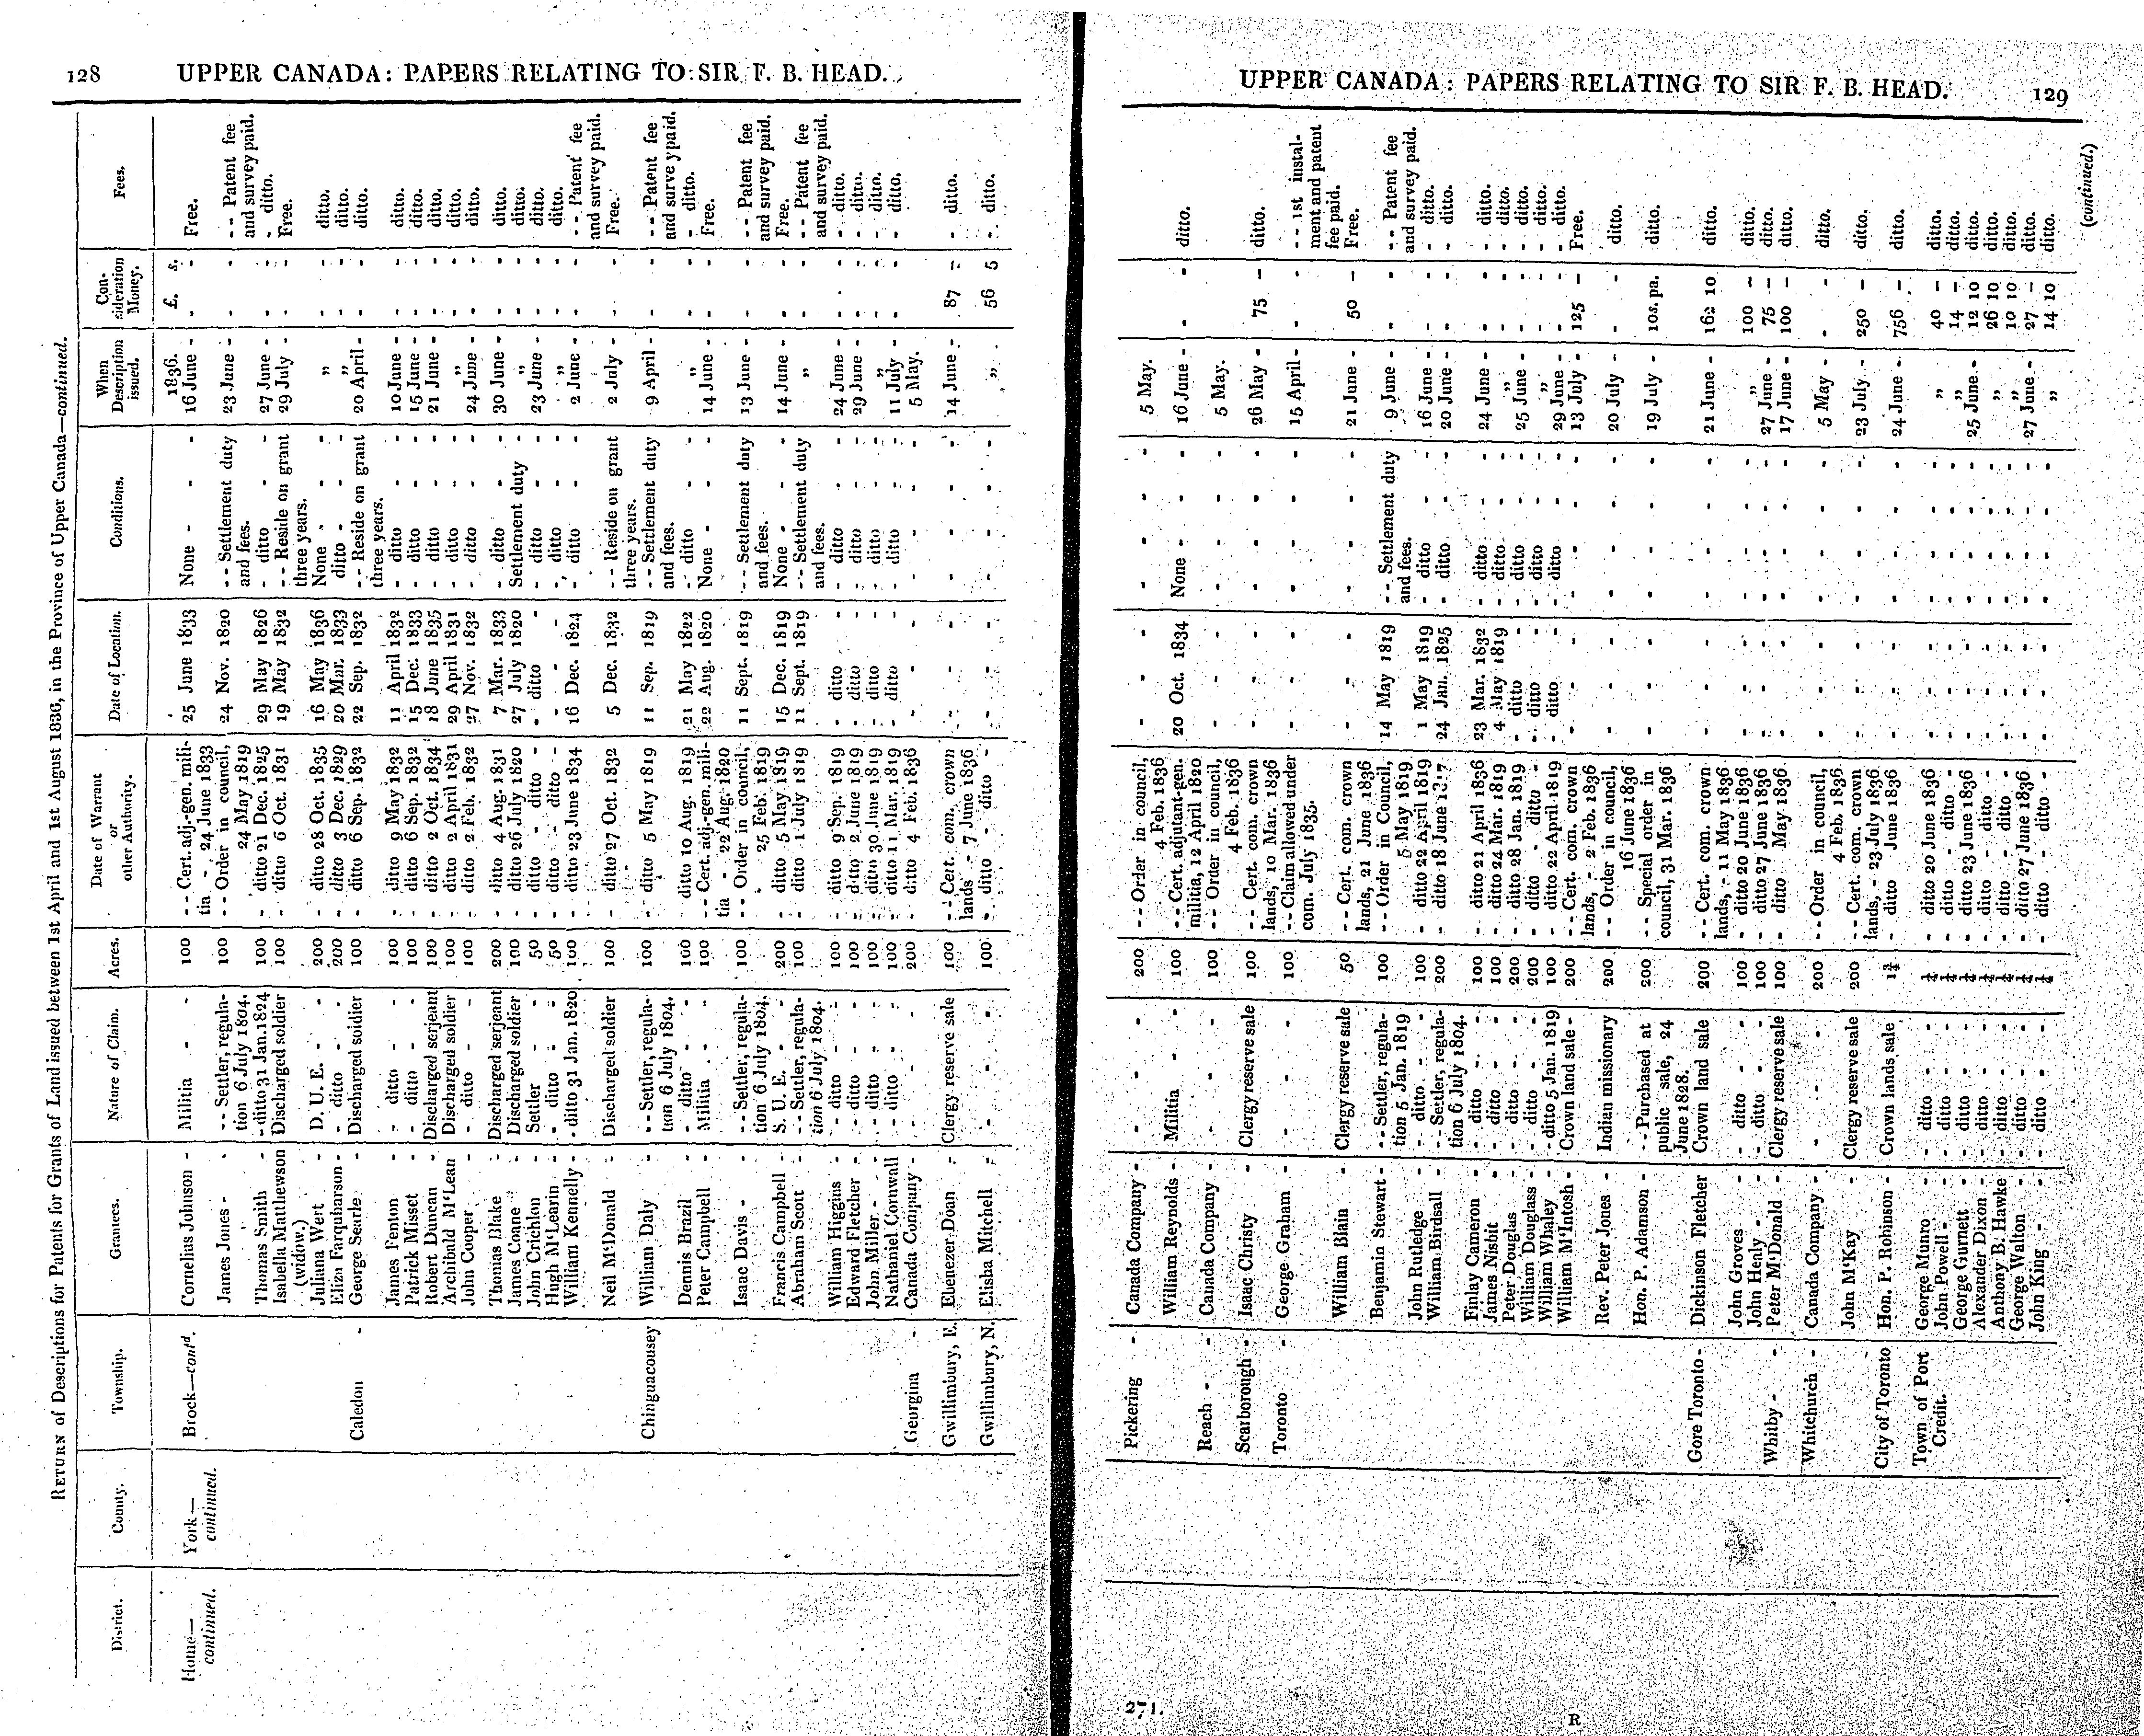 128 UPPER CANADA: PAPERS RELATING TO SIR F. B. HEAD.
RETURN of Descriptions for Patents for Grants of Land issued between 1st April and 1st August 1836, in the Province of Upper Canada—continued.
District. County. Township. Grantees. Nature of Claim. Acres. Date of Warrant or other Authority. Date of Location. Conditions. When Description issued. Consideration Money. Fees.
1836. £. s.
Home— York— Brock—contd. Cornelius Johnson - Militia - - 100 - - Cert. adj.-gen. mili- 25 June 1833 None - - 16 June - - - Free.
continued. continued. tia - 24 June 1833
James Jones - - - - Settler, regula- 100 - - Order in council, 24 Nov. 1820 - - Settlement duty 23 June - - - - - Patent fee
tion 6 July 1804. 24 May 1819 and fees. and survey paid.
Thomas Smith - - ditto 31 Jan. 1824 100 - ditto 21 Dec. 1825 29 May 1826 - ditto - - 27 June - - - - ditto.
Isabella Matthewson Discharged soldier 100 - ditto 6 Oct. 1831 19 May 1832 - - Reside on grant 29 July - - - Free.
(widow.) three years.
Juliana Wert - D. U. E. - - 200 - ditto 28 Oct. 1835 16 May 1836 None - - „ - - ditto.
Eliza Farquharson - - ditto - - 200 - ditto 3 Dec. 1829 20 Mar. 1833 ditto - - „ - - ditto.
Caledon - George Searle - Discharged soldier 100 - ditto 6 Sep. 1832 22 Sep. 1832 - - Reside on grant 20 April - - - ditto.
three years.
James Fenton - - ditto - - 100 - ditto 9 May 1832 11 April 1832 - ditto - - 10 June - - - ditto.
Patrick Misset - - ditto - - 100 - ditto 6 Sep. 1832 15 Dec. 1833 - ditto - - 15 June - - - ditto.
Robert Duncan - Discharged serjeant 100 - ditto 2 Oct. 1834 18 June 1835 - ditto - - 21 June - - - ditto.
Archibald M'Lean Discharged soldier 100 - ditto 2 April 1831 29 April 1831 - ditto - - „ - - ditto.
John Cooper - - ditto - - 100 - ditto 2 Feb. 1832 27 Nov. 1832 - ditto - - 24 June - - - ditto.
Thomas Blake - Discharged serjeant 200 - ditto 4 Aug. 1831 7 Mar. 1833 - ditto - - 30 June - - - ditto.
James Coane - Discharged soldier 100 - ditto 26 July 1820 27 July 1820 Settlement duty - „ - - ditto.
John Crichlon - Settler - - 50 - ditto - ditto - - ditto - - ditto - - 23 June - - - ditto.
Hugh M'Learin - - ditto - - 50 - ditto - ditto - - - - - ditto - - „ - - ditto.
William Kennelly - - ditto 31 Jan. 1820 100 - ditto 23 June 1834 16 Dec. 1824 - ditto - - 2 June - - - - - Patent fee
and survey paid.
Neil M'Donald - Discharged soldier 100 - ditto 27 Oct. 1832 5 Dec. 1832 - - Reside on grant 2 July - - - Free.
three years.
Chinguacousey William Daly - - - Settler, regula- 100 - ditto 5 May 1819 11 Sep. 1819 - - Settlement duty 9 April - - - - - Patent fee
tion 6 July 1804. and fees. and survey paid.
Dennis Brazil - - ditto - - 100 ditto 10 Aug. 1819 21 May 1822 - ditto - - „ - - - ditto.
Peter Campbell - Militia - - 100 - - Cert. adj.-gen. mili- 22 Aug. 1820 None - - 14 June - - - Free.
tia - 22 Aug. 1820
Isaac Davis - - - - Settler, regula- 100 - - Order in council, 11 Sept. 1819 - - Settlement duty 13 June - - - - - Patent fee
tion 6 July 1804. 25 Feb. 1819 and fees. and survey paid.
Francis Campbell - S. U. E. - - 200 - ditto 5 May 1819 15 Dec. 1819 None - - 14 June - - - Free.
Abraham Scott - - - Settler, regula- 100 - ditto 1 July 1819 11 Sept. 1819 - - Settlement duty „ - - - - Patent fee
tion 6 July 1804. and fees. and survey paid.
William Higgins - - ditto - - 100 - ditto 9 Sep. 1819 - ditto - - ditto - - 24 June - - - - ditto.
Edward Fletcher - - ditto - - 100 - ditto 2 June 1819 - ditto - - ditto - - 29 June - - - - ditto.
John Miller - - - ditto - - 100 - ditto 30 June 1819 - ditto - - ditto - - „ - - - ditto.
Nathaniel Cornwall - ditto - - 100 - ditto 11 Mar. 1819 - ditto - - ditto - - 11 July - - - - ditto.
Georgina - Canada Company - - - - 200 - ditto 4 Feb. 1836 - - - - - - 5 May.
Gwillimbury, E. Ebenezer Doan - Clergy reserve sale 100 - - Cert. com. crown - - - - - - 14 June - 87 - - ditto.
lands - 7 June 1836
Gwillimbury, N. Elisha Mitchell - - - - 100 - ditto - ditto - - - - - - - „ 56 5 - ditto.
UPPER CANADA: PAPERS RELATING TO SIR F. B. HEAD. 129
Pickering - Canada Company - - - - 200 - - Order in council, - - - - - - 5 May.
4 Feb. 1836
William Reynolds - Militia - - 100 - - Cert. adjutant-gen. 20 Oct. 1834 None - - - 16 June - - - ditto.
militia, 12 April 1820
Reach - - Canada Company - - - - 100 - - Order in council, - - - - - - 5 May.
4 Feb. 1836
Scarborough - Isaac Christy - Clergy reserve sale 100 - - Cert. com. crown - - - - - - 26 May - 75 - ditto.
lands, 10 Mar. 1836
Toronto - George Graham - - - - 100 - - Claim allowed under - - - - - - 15 April - - - - - 1st instal-
com. July 1835. ment and patent
fee paid.
William Blain - Clergy reserve sale 50 - - Cert. com. crown - - - - - - 21 June - 50 - Free.
lands, 21 June 1836
Benjamin Stewart - - - Settler, regula- 100 - - Order in Council, 14 May 1819 - - Settlement duty 9 June - - - - - Patent fee
tion 5 Jan. 1819 5 May 1819 and fees. and survey paid.
John Rutledge - - ditto - - 100 - ditto 22 April 1819 1 May 1819 - ditto - - 16 June - - - - ditto.
William Birdsall - - - Settler, regula- 200 - ditto 18 June 24 Jan. 1825 - ditto - - 20 June - - - - ditto.
tion 6 July 1804.
Finlay Cameron - - ditto - - 100 - ditto 21 April 1836 23 Mar. 1832 - ditto - - 24 June - - - - ditto.
James Nisbit - - ditto - - 100 - ditto 24 Mar. 1819 4 May 1819 - ditto - - „ - - - ditto.
Peter Douglas - - ditto - - 200 - ditto 28 Jan. 1819 - ditto - - ditto - - 25 June - - - - ditto.
William Douglass - - ditto - - 200 - ditto - ditto - - ditto - - ditto - - „ - - - ditto.
William Whaley - - ditto 5 Jan. 1819 100 - ditto 22 April 1819 - ditto - - ditto - - 29 June - - - - ditto.
William M'Intosh - Crown land sale - 200 - - Cert. com. crown - - - - - - 13 July - 125 - Free.
lands, - 2 Feb. 1836
Rev. Peter Jones - Indian missionary 200 - - Order in council, - - - - - - 20 July - - - ditto.
16 June 1836
Hon. P. Adamson - - - Purchased at 200 - - Special order in - - - - - - 19 July - 10s. pa. ditto.
public sale, 24 council, 31 Mar. 1836
June 1828.
Gore Toronto - Dickinson Fletcher Crown land sale 200 - - Cert. com. crown - - - - - - 21 June - 162 10 ditto.
lands, - 11 May 1836
John Groves - - ditto - - 100 - ditto 20 June 1836 - - - - - - „ 100 - ditto.
John Healy - - ditto - - 100 - ditto 27 June 1836 - - - - - - 27 June - 75 - ditto.
Whitby - - Peter M'Donald - Clergy reserve sale 100 - ditto May 1836 - - - - - - 17 June - 100 - ditto.
Whitchurch - Canada Company - - - - 200 - - Order in council, - - - - - - 5 May - - - ditto.
4 Feb. 1836
John M'Kay - Clergy reserve sale 200 - - Cert. com. crown - - - - - - 23 July - 250 - ditto.
lands, - 23 July 1836
City of Toronto Hon. P. Robinson - Crown lands sale - ditto June 1836 - - - - - - 24 June - 756 - ditto.
Town of Port George Munro - - ditto - - - ditto 20 June 1836 - - - - - - „ 40 - ditto.
Credit. John Powell - - - ditto - - - ditto - ditto - - - - - - - „ 14 - ditto.
George Gurnett - - ditto - - - ditto 23 June 1836 - - - - - - 25 June - 12 10 ditto.
Alexander Dixon - - ditto - - - ditto - ditto - - - - - - - „ 26 10 ditto.
Anthony B. Hawke - ditto - - - ditto - ditto - - - - - - - „ 10 10 ditto.
George Walton - - ditto - - - ditto 27 June 1836 - - - - - - 27 June - 27 - ditto.
John King - - - ditto - - - ditto - ditto - - - - - - - „ 14 10 ditto.
(continued.)
271. R